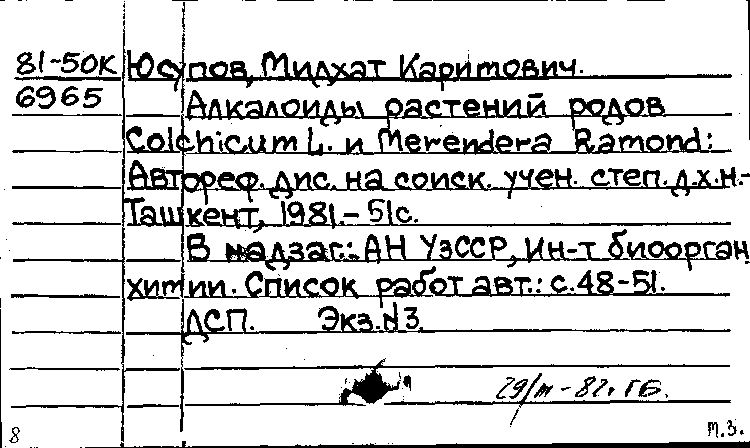 81-50К Юсупов, Мидхат Каримович.
6965 Алкалоиды растений родов
Colchicum L. и Merendera Ramond:
Автореф. дис. на соиск. учен. степ. д.х.н.-
Ташкент, 1981.- 51с.
В надзаг.: АН УзССР, Ин-т биоорган
химии. Список работ авт.: с.48-51.
ДСП. Экз.№3.
29/III-82г. ГБ.
8 т.з.